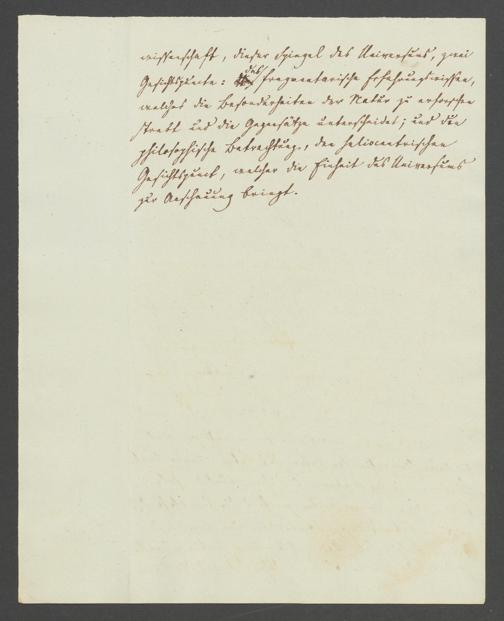 wissenschaft, dieser Spiegel des Universums, zwei
Gesichtspuncte: das fragmentarische Erfahrungswissen,
welches die Besonderheiten der Natur zu erforschen
strebt und die Gegensätze unterscheidet; und die
philosophische Betrachtung, den heliocentrischen
Gesichtspunct, welcher die Einheit des Universums
zur Anschauung bringt.